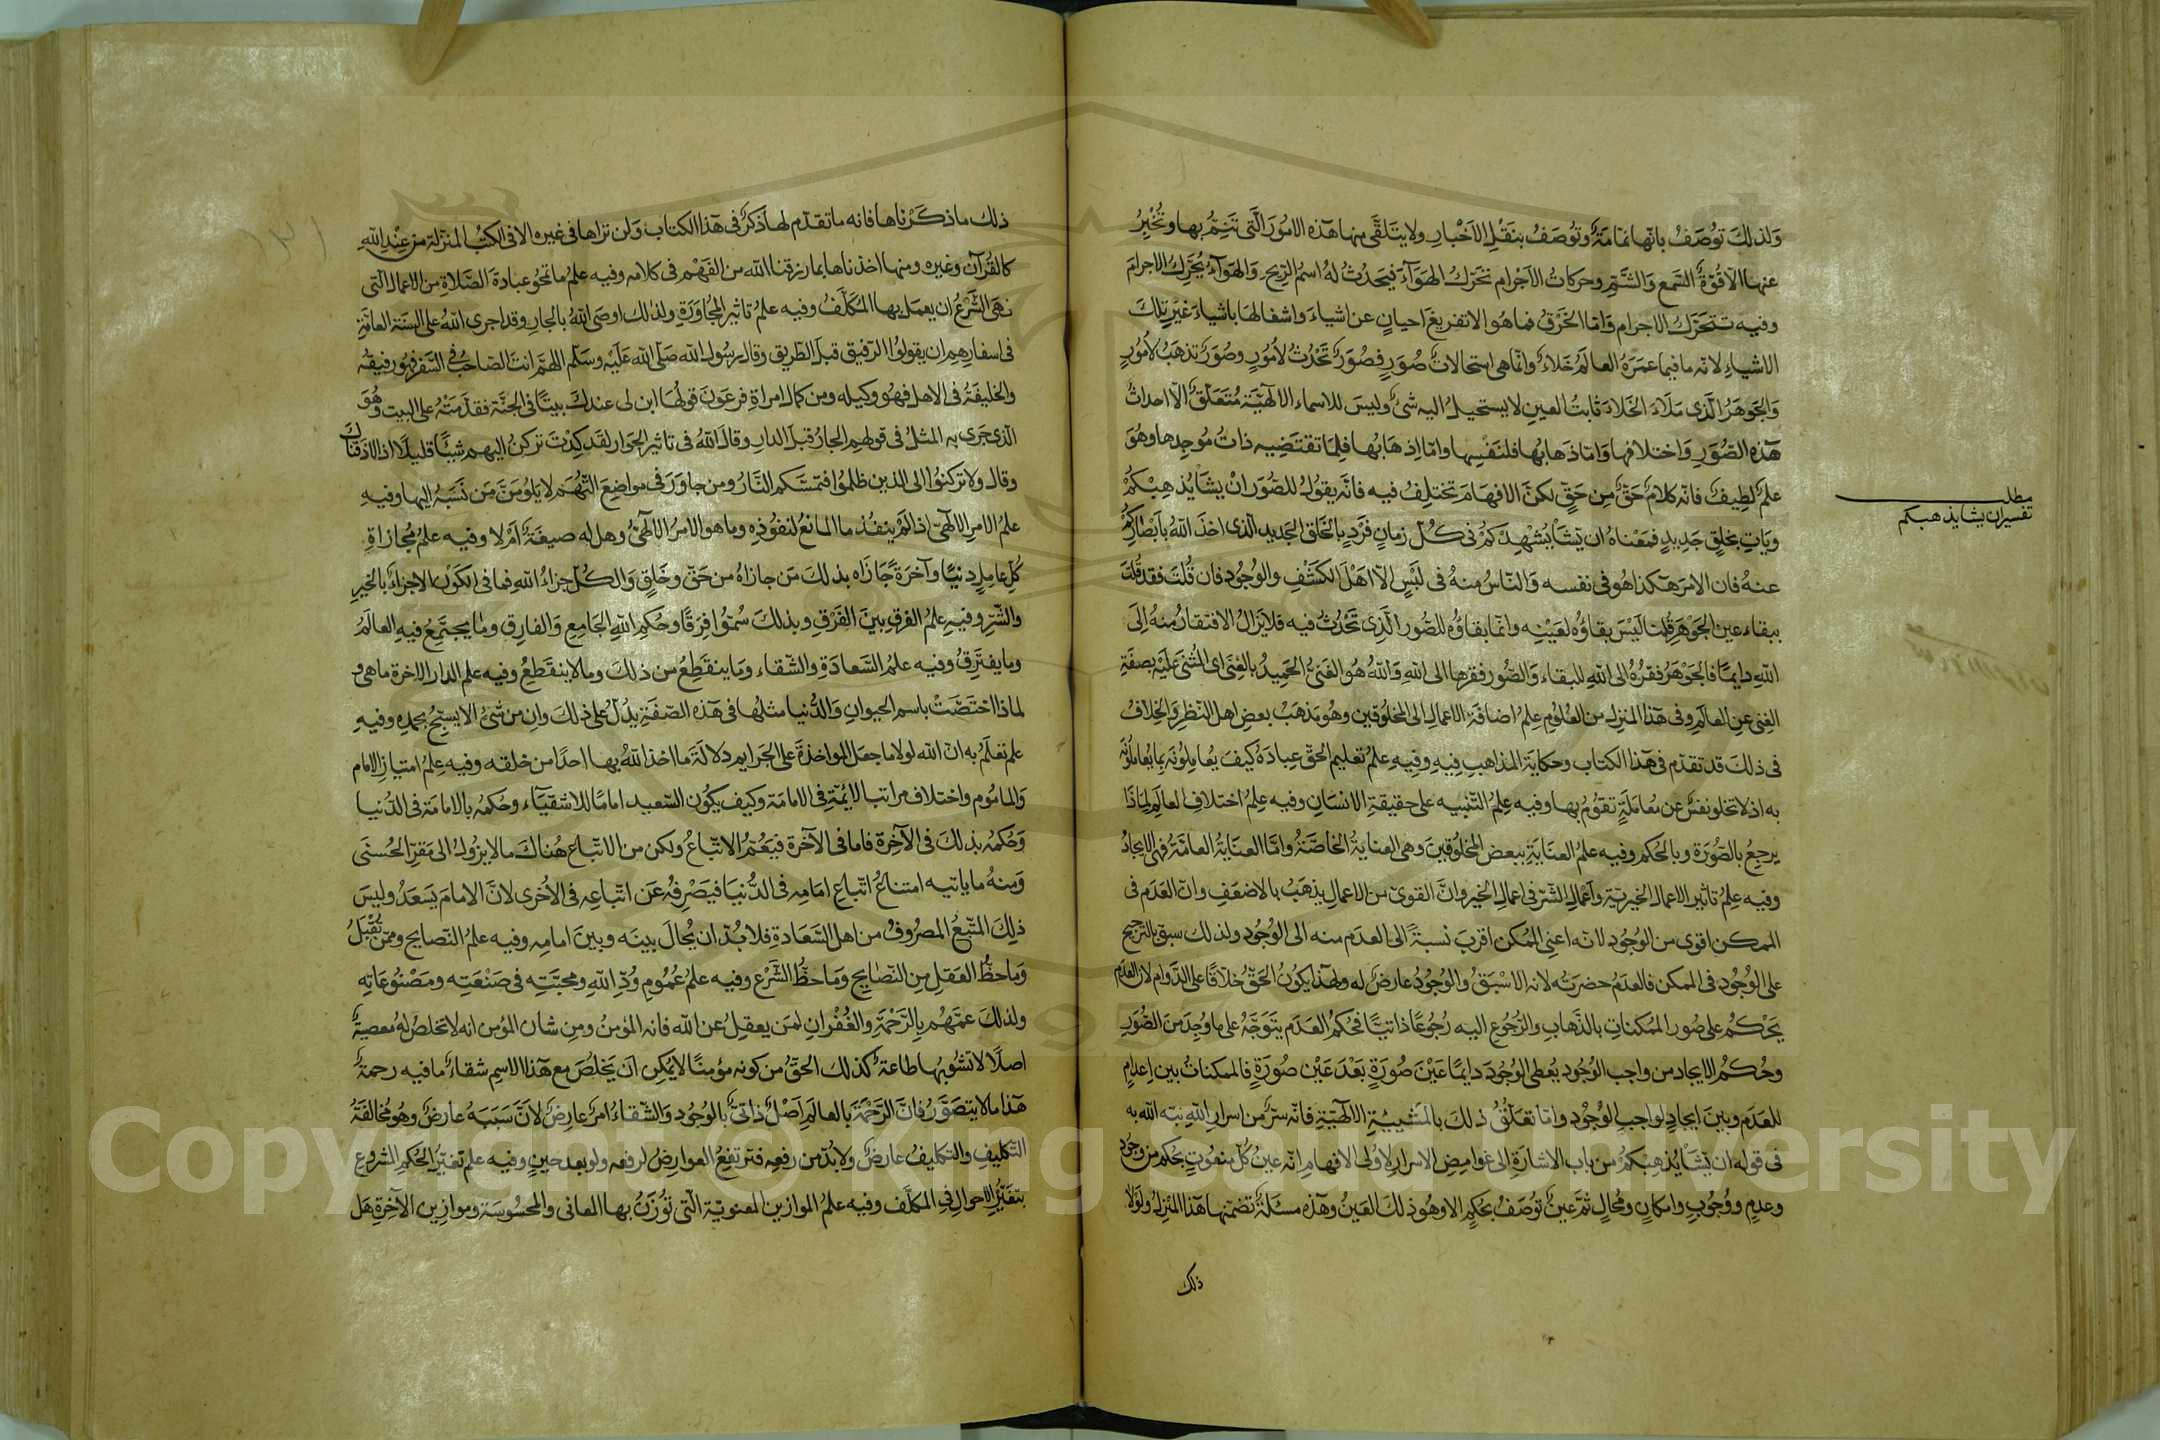 وَلذلكَ توُصَفُ بانّها نمّامَةٌ وتوُصَفُ بنقلِ الاَخْبارِ ولا يتَلقَّى منها هذه الامُورَ الَّتى تَنِمُّ بها وتُخْبِرُ
عنها الاّ قُوّةُ السَّمع وَالشَّمِّ وحركاتُ الاَجْرامِ تحَرِّكُ الهوَآءَ فيَحدُثُ لهُ اسمُ الرّيحِ وَالهَوَآءُ يُحَرِّكُ الاجرامَ
وفيه تتَحَرّكُ الاجرام وَامّا الخَرْقُ فما هُو الاّ تفريغ احيانٍ عن اشياءَ واشغالُها باشياءَ غيرِ تلكَ
الاشياءِ لانّه ما فيما عمَرَهُ العالَمُ خَلاءٌ وانّما هى استحالاتُ صُوَرٍ فصُوَرٌ تَحْدُثُ لأمُورٍ وصُوَرٌ تذهَبُ لأمُورٍ
وَالجَوهَرُ الّذى مَلَاءَ الخَلاءَ ثابتُ العينِ لا يستحيلُ اليه شئٌ وليسَ للاسماء الالهيّة مُتَعَلّقٌ الّا احداثُ
هذه الصُّوَرِ وَاختلافها وَامّا ذهَابُها فلنَفْسِها وامّا اِذهَابُها فلِمَا تقتَضِيه ذاتُ مُوجِدِها وهُوَ
علمٌ لطِيفٌ فانّه كلامٌ حَقٌّ مِن حَقٍّ لكنّ الافهامَ تختلِفُ فيه فانّه يقولُ للصُّوَرِ انْ يشأ يُذهِبْكُمْ
ويَاتِ بخلقٍ جَدِيدٍ فمَعْناهُ ان يَشَأ يُشهِدكُمْ فى كُلّ زمانٍ فَرْدٍ بالخَلق الجديد الّذى اخذَ اللهُ بابْصَارِكُمْ
عنهُ فان الامرَ هكذا هُو فى نفسه وَالنّاسُ منهُ فى لَبْسٍ الاّ اهْلَ الكَشْفِ والوُجُودِ فان قُلتَ فقد قُلتَ
ببقاء عين الجَوْهَرِ قُلنا لَيْسَ بقاؤهُ لعَيْنِه وانّما بقاؤُه للصُّورِ الّذِى تَحْدُثُ فيه فلا يَزَالُ الافتقارُ منهُ اِلَى
اللهِ دايمًا فالجَوْهَرُ فقرُهُ الى اللهِ للبقاءِ والصُّورُ فقرها الى اللهِ وَاللهُ هُو الغَنىُّ الحَمِيدُ بالغِنَى اى المُثنَى عَلَيْه بصفَةِ
الغِنى عن العالَمِ وفى هذا المنزِلِ من العُلُومِ علمُ اضافَة الاعمال الى المخلوُقين وهُو مَذهَبُ بعضِ اهل النّظرِ وَالخِلافُ
فى ذلكَ قد تقدّم فى هذا الكتاب وحكايَة المذاهبِ فيه وفيه علمُ تعليم الحَقّ عِبادَهُ كيفَ يُعامِلُونَه بما يُعامِلُونَه
به اذ لا تخلو نفسٌ عن مُعاملَةٍ تقوُمُ بها وفيه علمُ التّنبيه على حقيقةِ الانسَانِ وفيه علمُ اختلافِ العالَمِ لماذَا
يرجعُ بالصُّورَة وبالحُكم وفيه علمُ العنَايَةِ ببعض المخلوُقينَ وهى العنايةُ الخاصَّةُ وامّا العنَايَةُ العامّةُ فهى الايجادُ
وفيه علمُ تاثير الاعمال الخيريّةِ وَاعمالِ الشّرّ فى اعمالِ الخيرِ وانّ القوىَّ من الاعمالِ يذهَبُ بالاضعَفِ وانّ العَدَم فى
الممكن اقوى من الوُجُودِ لانّه اعنى الممُكن اقرَبَ نسبَةً الى العدَم منه الى الوُجُود ولذلك سبق بالترجيح
على الوُجُودِ فى الممكن فالعدَمُ حضرَتُه لانه الاسْبَقُ والوُجُودُ عارضٌ له ولهذا يكونُ الحَقُّ خلاّقًا على الدّوام لان العدَم
يَحْكُمُ على صُور الممُكناتِ بالذّهابِ والرّجُوعِ اليه رجُوعًا ذاتيًّا فحُكمُ العَدَم يتَوَجّهُ على ما وُجِدَ مِنَ الصُّوَرِ
وحُكمُ الايجاد من واجب الوُجُودِ يُعطى الوُجُودَ دايمًا عَيْنَ صُورَةٍ بَعْدَ عَيْنِ صُورَةٍ فالممكناتُ بين اِعدامٍ
للعَدَمِ وبين ايجادٍ لواجبِ الوُجُودِ وامّا تعَلّقُ ذلكَ بالمَشيئةِ الالهيّةِ فانّه سرٌّ من اسرارِ اللهِ نبّه الله به
فى قوله ان يَّشَأ يُذهِبْكُمْ من باب الاشارَةِ الى غوامِضِ الاسرارِ لاِولى الافهام انّه عينُ كُلِّ منعُوتٍ بحُكمٍ من وجُودٍ
وعدمٍ ووُجُوبٍ وامكانٍ ومُحالٍ ثمّ عينٌ تُوصَفُ بحُكمٍ الا وهُو ذلكَ العَينُ وهذه مسئلةٌ تضمّنها هَذا المَنزِلُ ولَولا
ذلك
مطلب
تفسير ان يشا يذهبكم
ذلك ما ذكَرْناها فانه ما تقدّم لها ذكرٌ فى هذا الكتاب وَلن تراها فى غيره الا فى الكتُب المنزّلة من عِنْدِ اللهِ
كالقُرآن وغيره ومنها اخذناها بما رزقنا الله من الفَهْم فى كلامه وفيه علمُ ما تمحُو عبادَةُ الصّلاةِ من الاعمال الّتى
نهَى الشّرْعُ ان يعملَ بها المُكَلّفُ وفيه علمُ تاثير المُجاوَرَةِ ولذلك اوصَى اللهُ بالجارِ وقد اجرى اللهُ على السنَة العامّةِ
فى اسفارِهِم ان يقولوُا الرّفيق قبلَ الطّريق وقال رسُولُ الله صَلّى الله عَلَيْه وسَلّم اللهمّ انتَ الصّاحبُ فى السّفر فهُو رفيقهُ
والخليفَةُ فى الاهلِ فهُو وكيله ومن كمال امراةِ فرعَونَ قولُها ابن لى عندكَ بيتًا فى الجنّة فقدّمتهُ على البيت وَهُوَ
الّذى جَرى به المثلُ فى قولهم الجارُ قبلَ الدارِ وقالَ اللهُ فى تاثير الجوَارِ لقَد كِدْتَ تركنُ اليهم شيئًا قليلًا اذا لاذقناكَ
وقال ولا تركنُوا الى الذين ظلموُا فتمسَّكم النَّارُ ومن جاوَرَ فى مواضِعَ التُّهَم لا يلُومَنّ مَن نَسَبَهُ اليها وفيهِ
علمُ الامرِ الالهىّ اذا لَمْ ينفُذ ما المانعُ لنفُوذِه وما هو الامرُ الالهىُّ وهل له صيغَةٌ اَمْ لا وفيه علمُ مُجازاةِ
كُلّ عاملٍ دنيًا وآخرَةً جَازَاه بذلكَ مَن جازاهُ من حَقّ وخَلقٍ وَالكُلّ جزاءُ اللهِ فما فى الكَوْن الا جزاءٌ بالخيرِ
والشّرّ وفيهِ علمُ الفرقِ بينَ الفَرَقِ وبذلكَ سُمّوُا فِرَقًا وحُكمِ اللهِ الجَامِعِ وَالفارِق وما يجتمِعُ فيهِ العالَمُ
وما يفتَرِقُ وفيه علمُ السَّعادَةِ والشّقاء ومَا ينقَطِعُ من ذلكَ وما لا ينقَطِعُ وفيه علم الدار الاخرة ما هى و
لماذا اختَصّتْ باسم الحيوانِ والدُّنيا مثلُها فى هذه الصّفَةِ يدُلُّ على ذلكَ وان من شئ الا يسبّحُ بحمدِه وفيهِ
علم نعْلَمُ به انّ الله لولا ما جعل المواخذَةَ على الجَرايم دلالَةً ما اخذ اللهُ بها احدًا من خلقه وفيه علمُ امتيازِ الامام
والمامُوم واختلاف مراتب الايمّةِ فى الامامَة وكيف يكُون السّعيد امامًا للاشقيَآء وحُكمُه بالامامَة فى الدُّنيا
وَحُكمُه بذلكَ فى الآخِرَة فاما فى الآخرَة فيَعُمّ الاتّباعُ ولكن من الاتبَاع هُناكَ ما لا يزُولُ الى مَقرّ الحُسْنَى
وَمنهُ ما ياتيه امتناعُ اتّباعِ امَامِه فى الدُّنيا فيَصْرِفُه عَن اتّباعِه فى الأخرى لانّ الامامَ يَسعَدُ وليسَ
ذلِكَ المتّبعُ المصرُوفُ من اهل السّعَادَةِ فلا بُدّ ان يُحالَ بينَه وبينَ امامِه وفيه علمُ النّصايح وممّن تُقْبَلُ
وَما حظُّ العَقلِ مِن النّصَايح وَمَا حظُّ الشّرْع وفيه علمُ عُمُومِ وُدِّ اللهِ ومحبّتِه فى صَنْعَتِه ومَصْنُوعَاتِه
ولذلكَ عمّهُم بالرّحْمَةِ والغُفْرانِ لمن يعقِلُ عن الله فانه المؤمنُ ومن شان المؤمن انه لا تخلصُ لهُ معصيةٌ
اصلًا لا تشُوبُها طاعةٌ كذلكَ الحَقُّ من كونه مؤمنًا لا يمُكن اَن يَخلُصَ مع هَذا الاسم شقاءٌ ما فيه رحمَةٌ
هَذا ما لا يتصَوَّرُ فانّ الرّحْمَةَ بالعالَمِ اَصْلٌ ذاتىٌّ بالوُجُودِ وَالشّقاءُ امرٌ عارِضٌ لانّ سَبَبَه عارضٌ وهُو مُخالفَةُ
التّكليفِ والتكليفُ عارضٌ ولا بُدّ من رفعِه فترتفعُ العوارضُ لرفعه ولو بعد حينٍ وفيه علم تغيّر الحُكم المشروع
بتغيّرُ الاحوالِ فى المكلَّف وفيه علمُ الموازينِ المعنويّة الّتى توُزَنُ بها المعانى والمحسُوسَة وموازين الآخرةِ هَل
Copyright © King Saud University